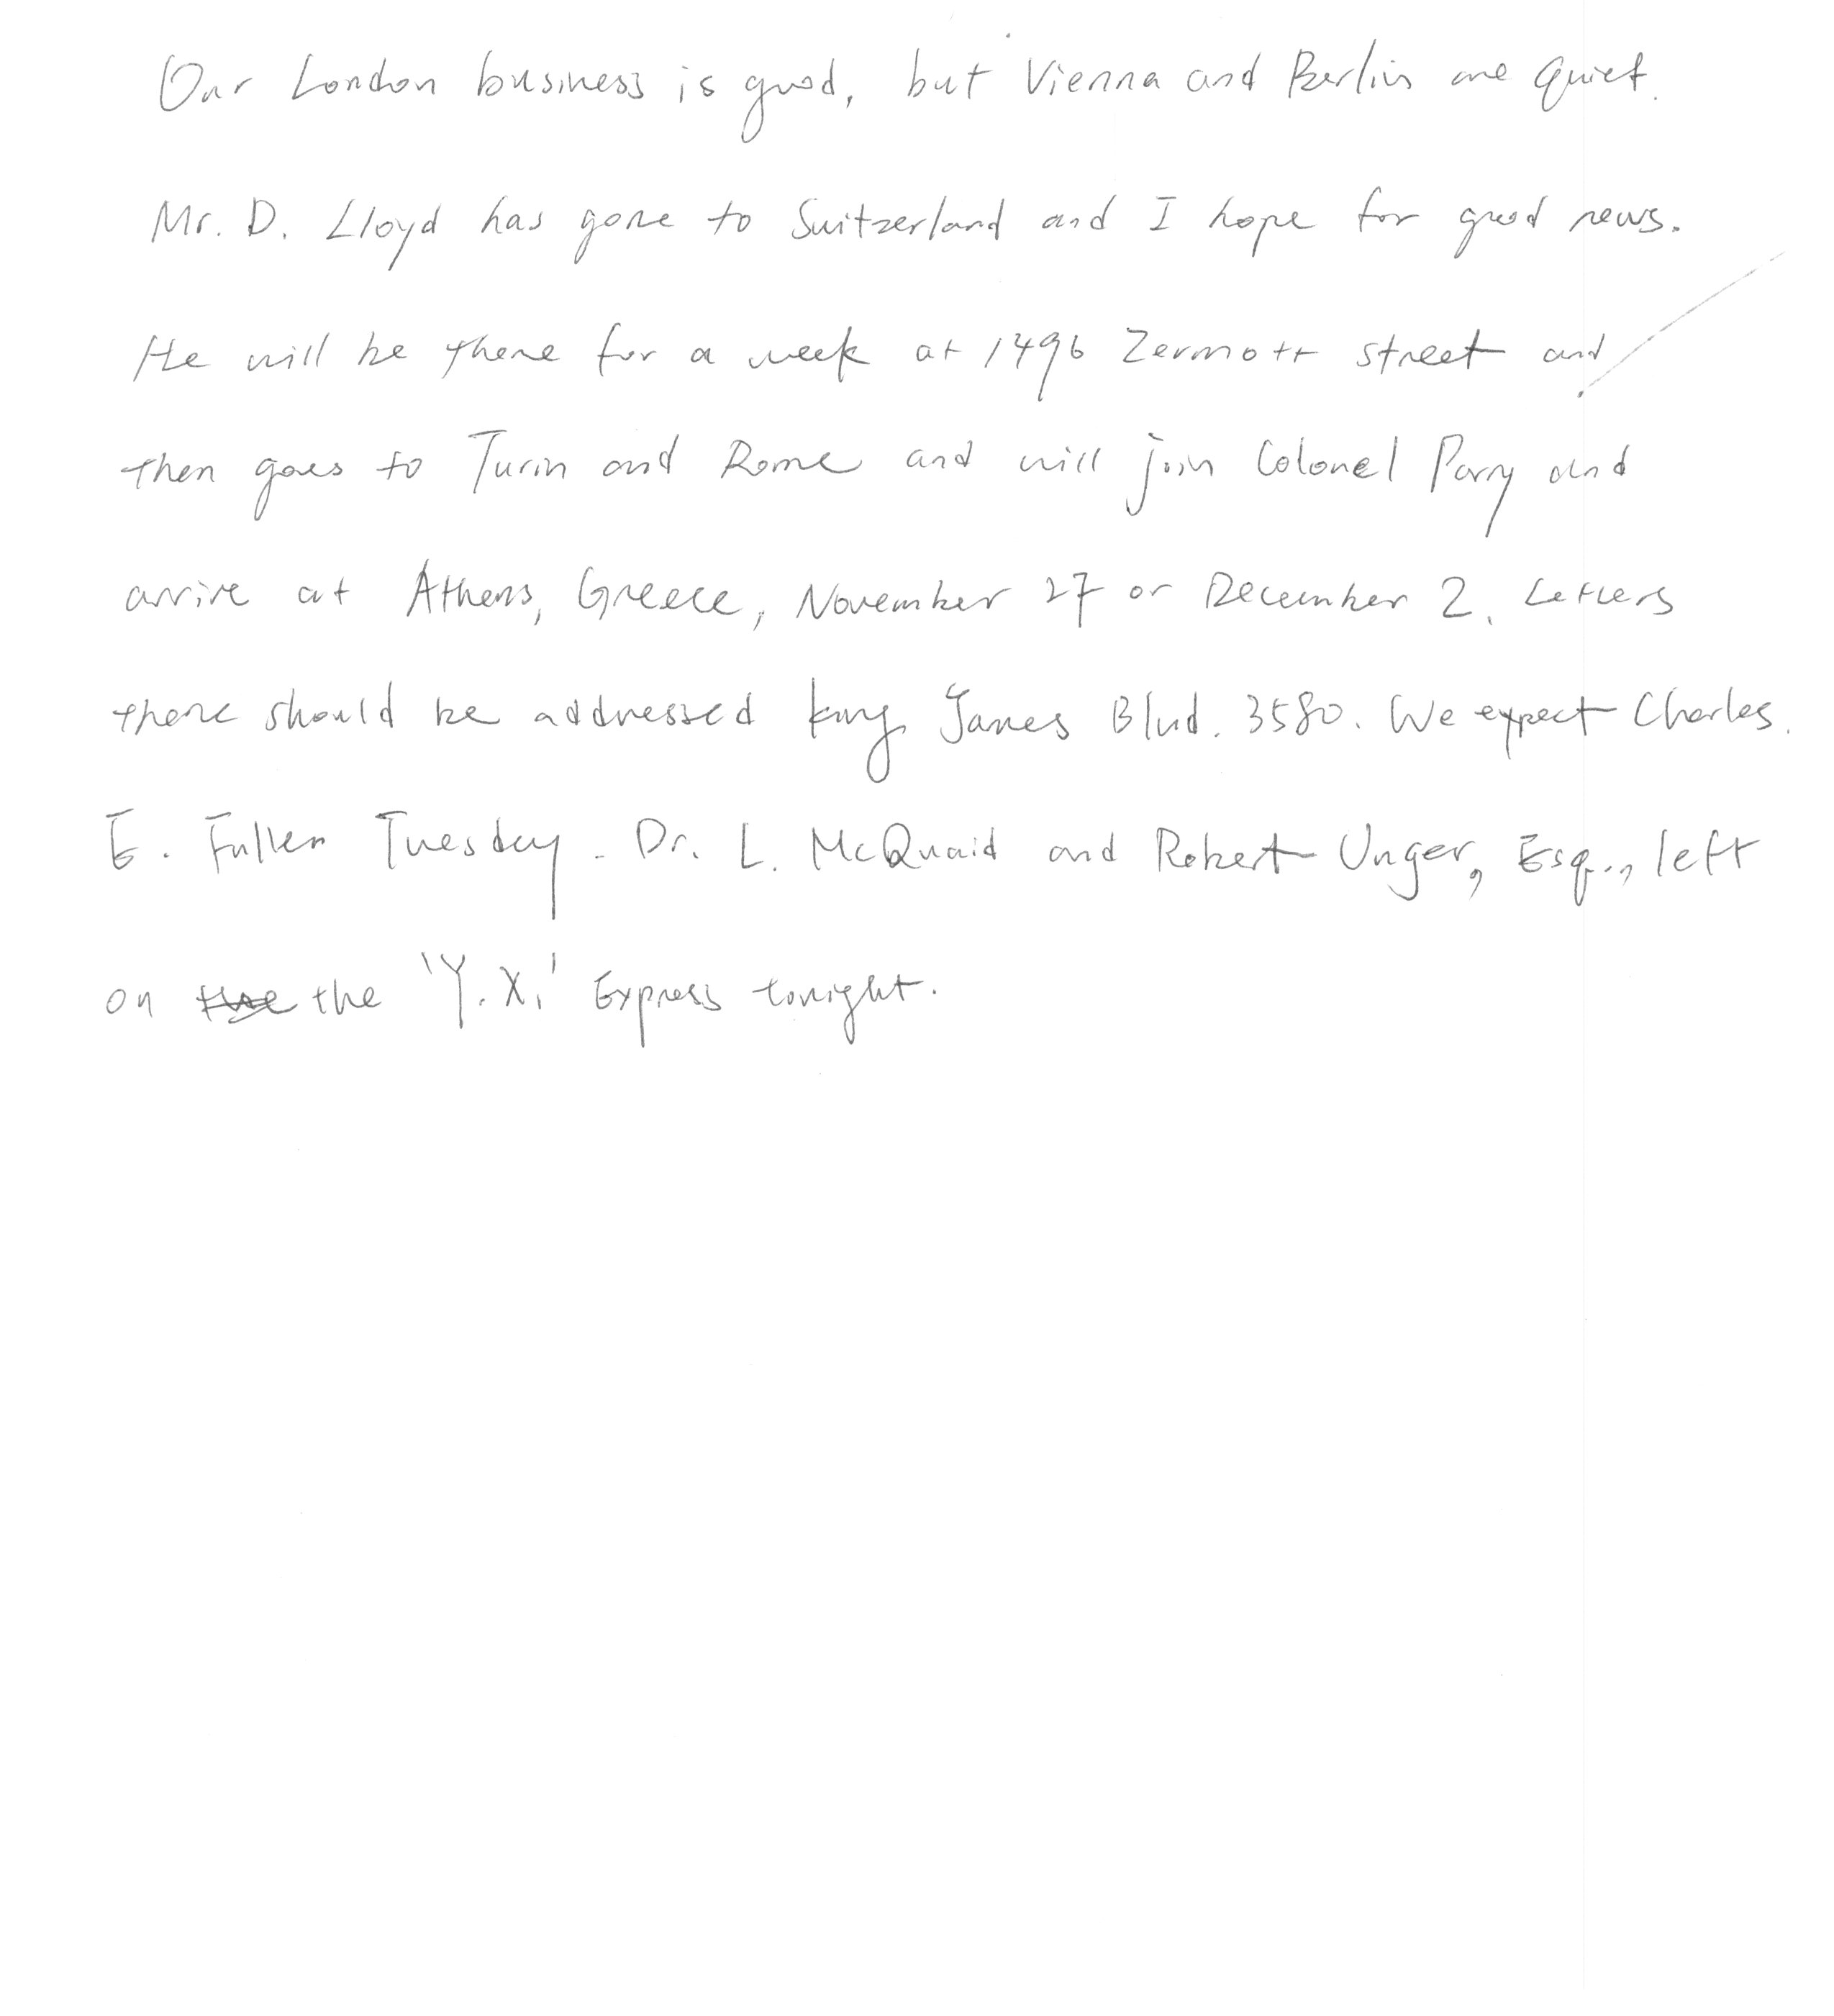 Our London business is good, but Vienna and Berlin are quiet.
Mr. D. Lloyd has gone to Switzerland and I hope for good news.
He will be there for a week at 1496 Zermott street and
then goes to Turin and Rome and will join Colonel Parry and
arrive at Athens, Greece, November 27 or December 2. Letters
there should be addressed King James Blvd. 3580. We expect Charles.
E. Fuller Tuesday. Dr. L. McQuaid and Robert Unger, Esq., left
on the 'Y.X.' Express tonight.